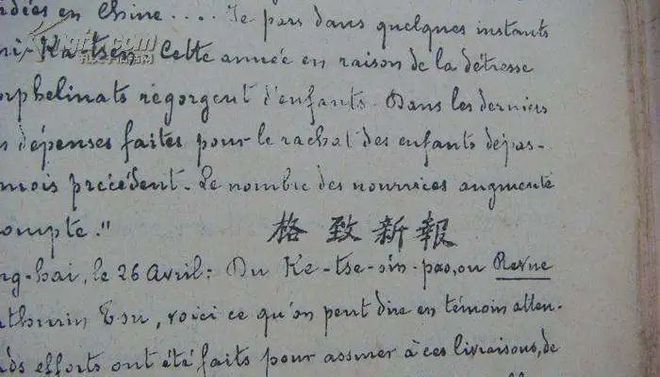 rdées en Chine .... Je pars dans quelques instants
ni-Ka-tsen. Cette année en raison de la détresse
orphelinats régorgent d'enfants. Dans les derniers
s dépenses faites pour le rachat des enfants dépas-
mois précédent. Le nombre des nourrices augmente
ompte."
格致新報
ng-hai, le 26 Avril: Du Ke-tse-sin-pao, ou Revue
athurin Tsu, voici ce qu'on peut dire en témoin atten-
ds efforts ont été faits pour assurer à ces livraisons, de